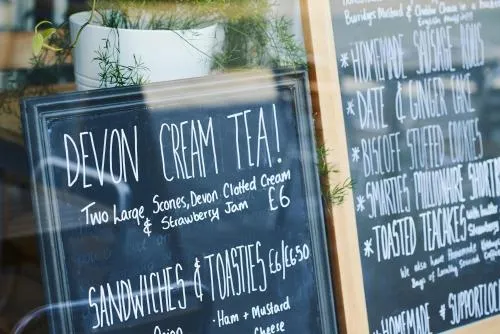 DEVON CREAM TEA!
Two Large Scones, Devon Clotted Cream
& Strawberry Jam £6
SANDWICHES & TOASTIES £6/£6.50
Onion
· Ham + Mustard
Cheese
Burridges Mustard & Cheddar Cheese in a
English Muffin
* HOMEMADE SAUSAGE ROLLS
* DATE & GINGER CAKE
* BISCOFF STUFFED COOKIES
* SMARTIES MILLIONAIRE SHORTB
* TOASTED TEACAKES with butter
Strawberry
We also have
Bags of Locally
* HOMEMADE * SUPPORTLOC